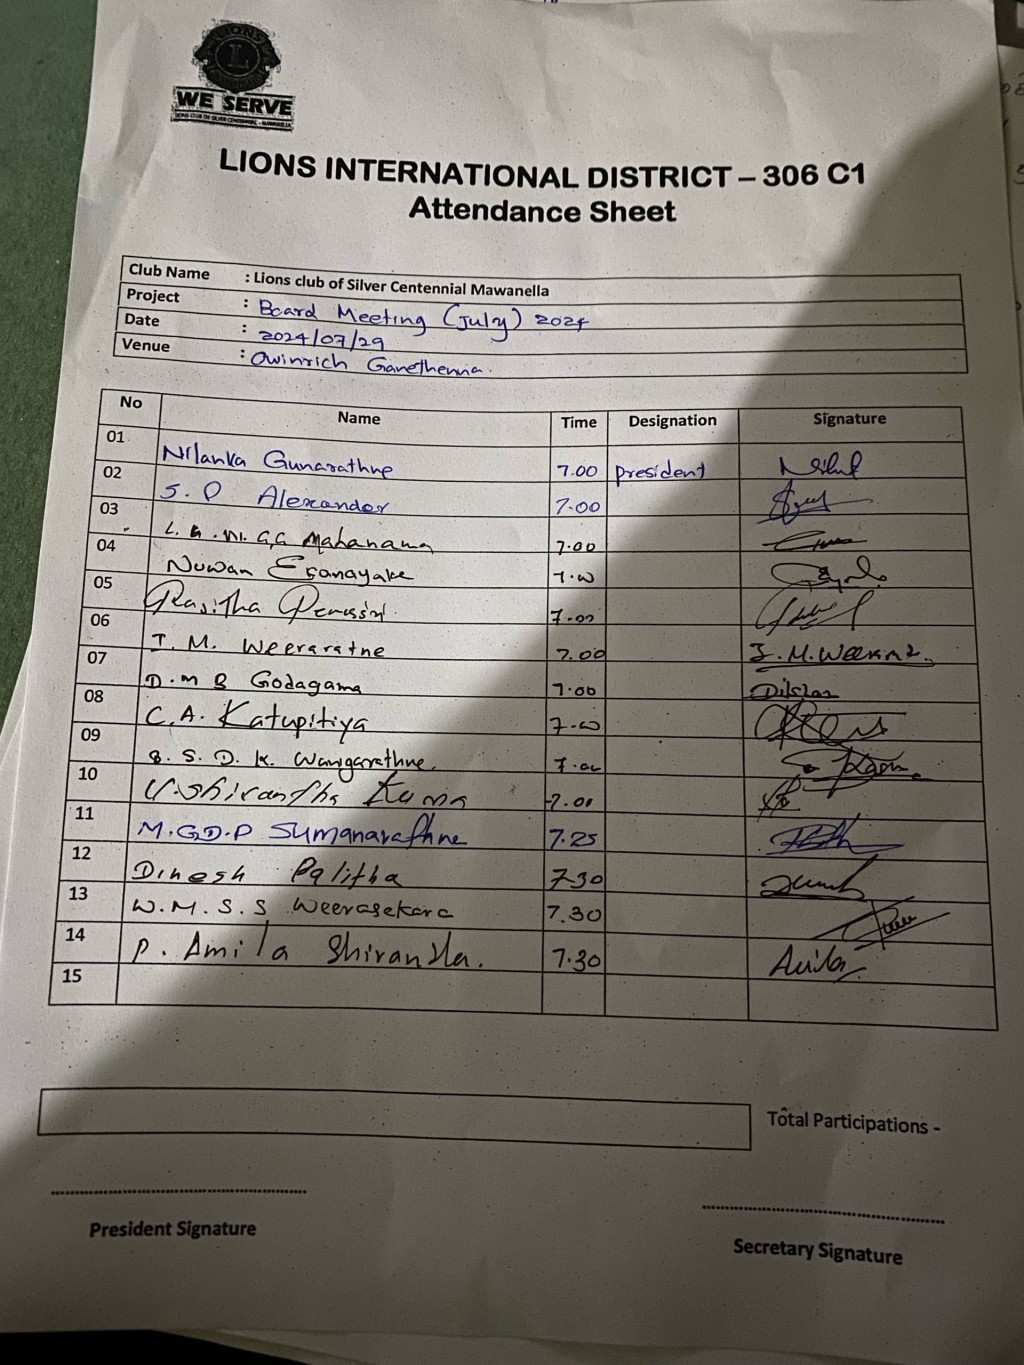 LIONS
L
WE SERVE
LIONS CLUB OF SILVER CENTENNIAL - MAWANELLA
LIONS INTERNATIONAL DISTRICT – 306 C1
Attendance Sheet
Club Name : Lions club of Silver Centennial Mawanella
Project : Board Meeting (July) 2024
Date : 2024/07/29
Venue : Owinrich Ganethenna.
No Name Time Designation Signature
01 Nilanka Gunarathne 7.00 president
02 S. P Alexander 7.00
03 Mahanama 7.00
04 Nuwan Eganayake 7.00
05 Rasitha 7.00
06 I. M. Weeraratne 7.00
07 D. M B Godagama 7.00 Dilshan
08 C. A. Katupitiya 7.00
09 S. D. K. Wanigarathne 7.00
10 7.00
11 M.G.D.P Sumanarathne 7.25
12 Dinesh Palitha 7.30
13 W. M. S. S Weerasekara 7.30
14 P. Amila Shirantha. 7.30 Amila
15
Total Participations -
President Signature
Secretary Signature